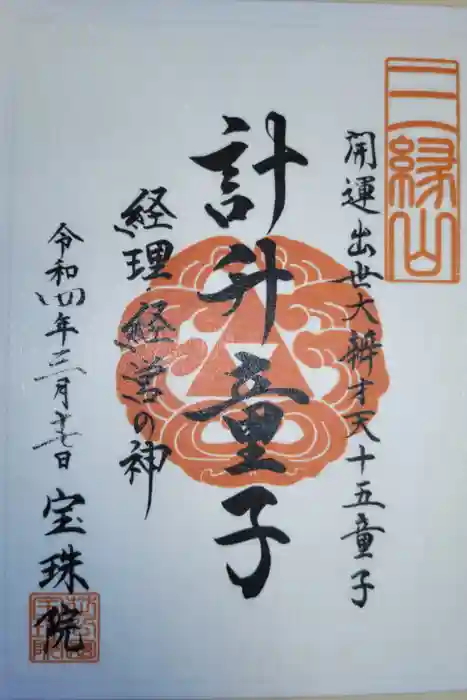 三縁山
開運出世大辨才天十五童子
計升童子
経理・経営の神
令和四年三月 日 宝珠院